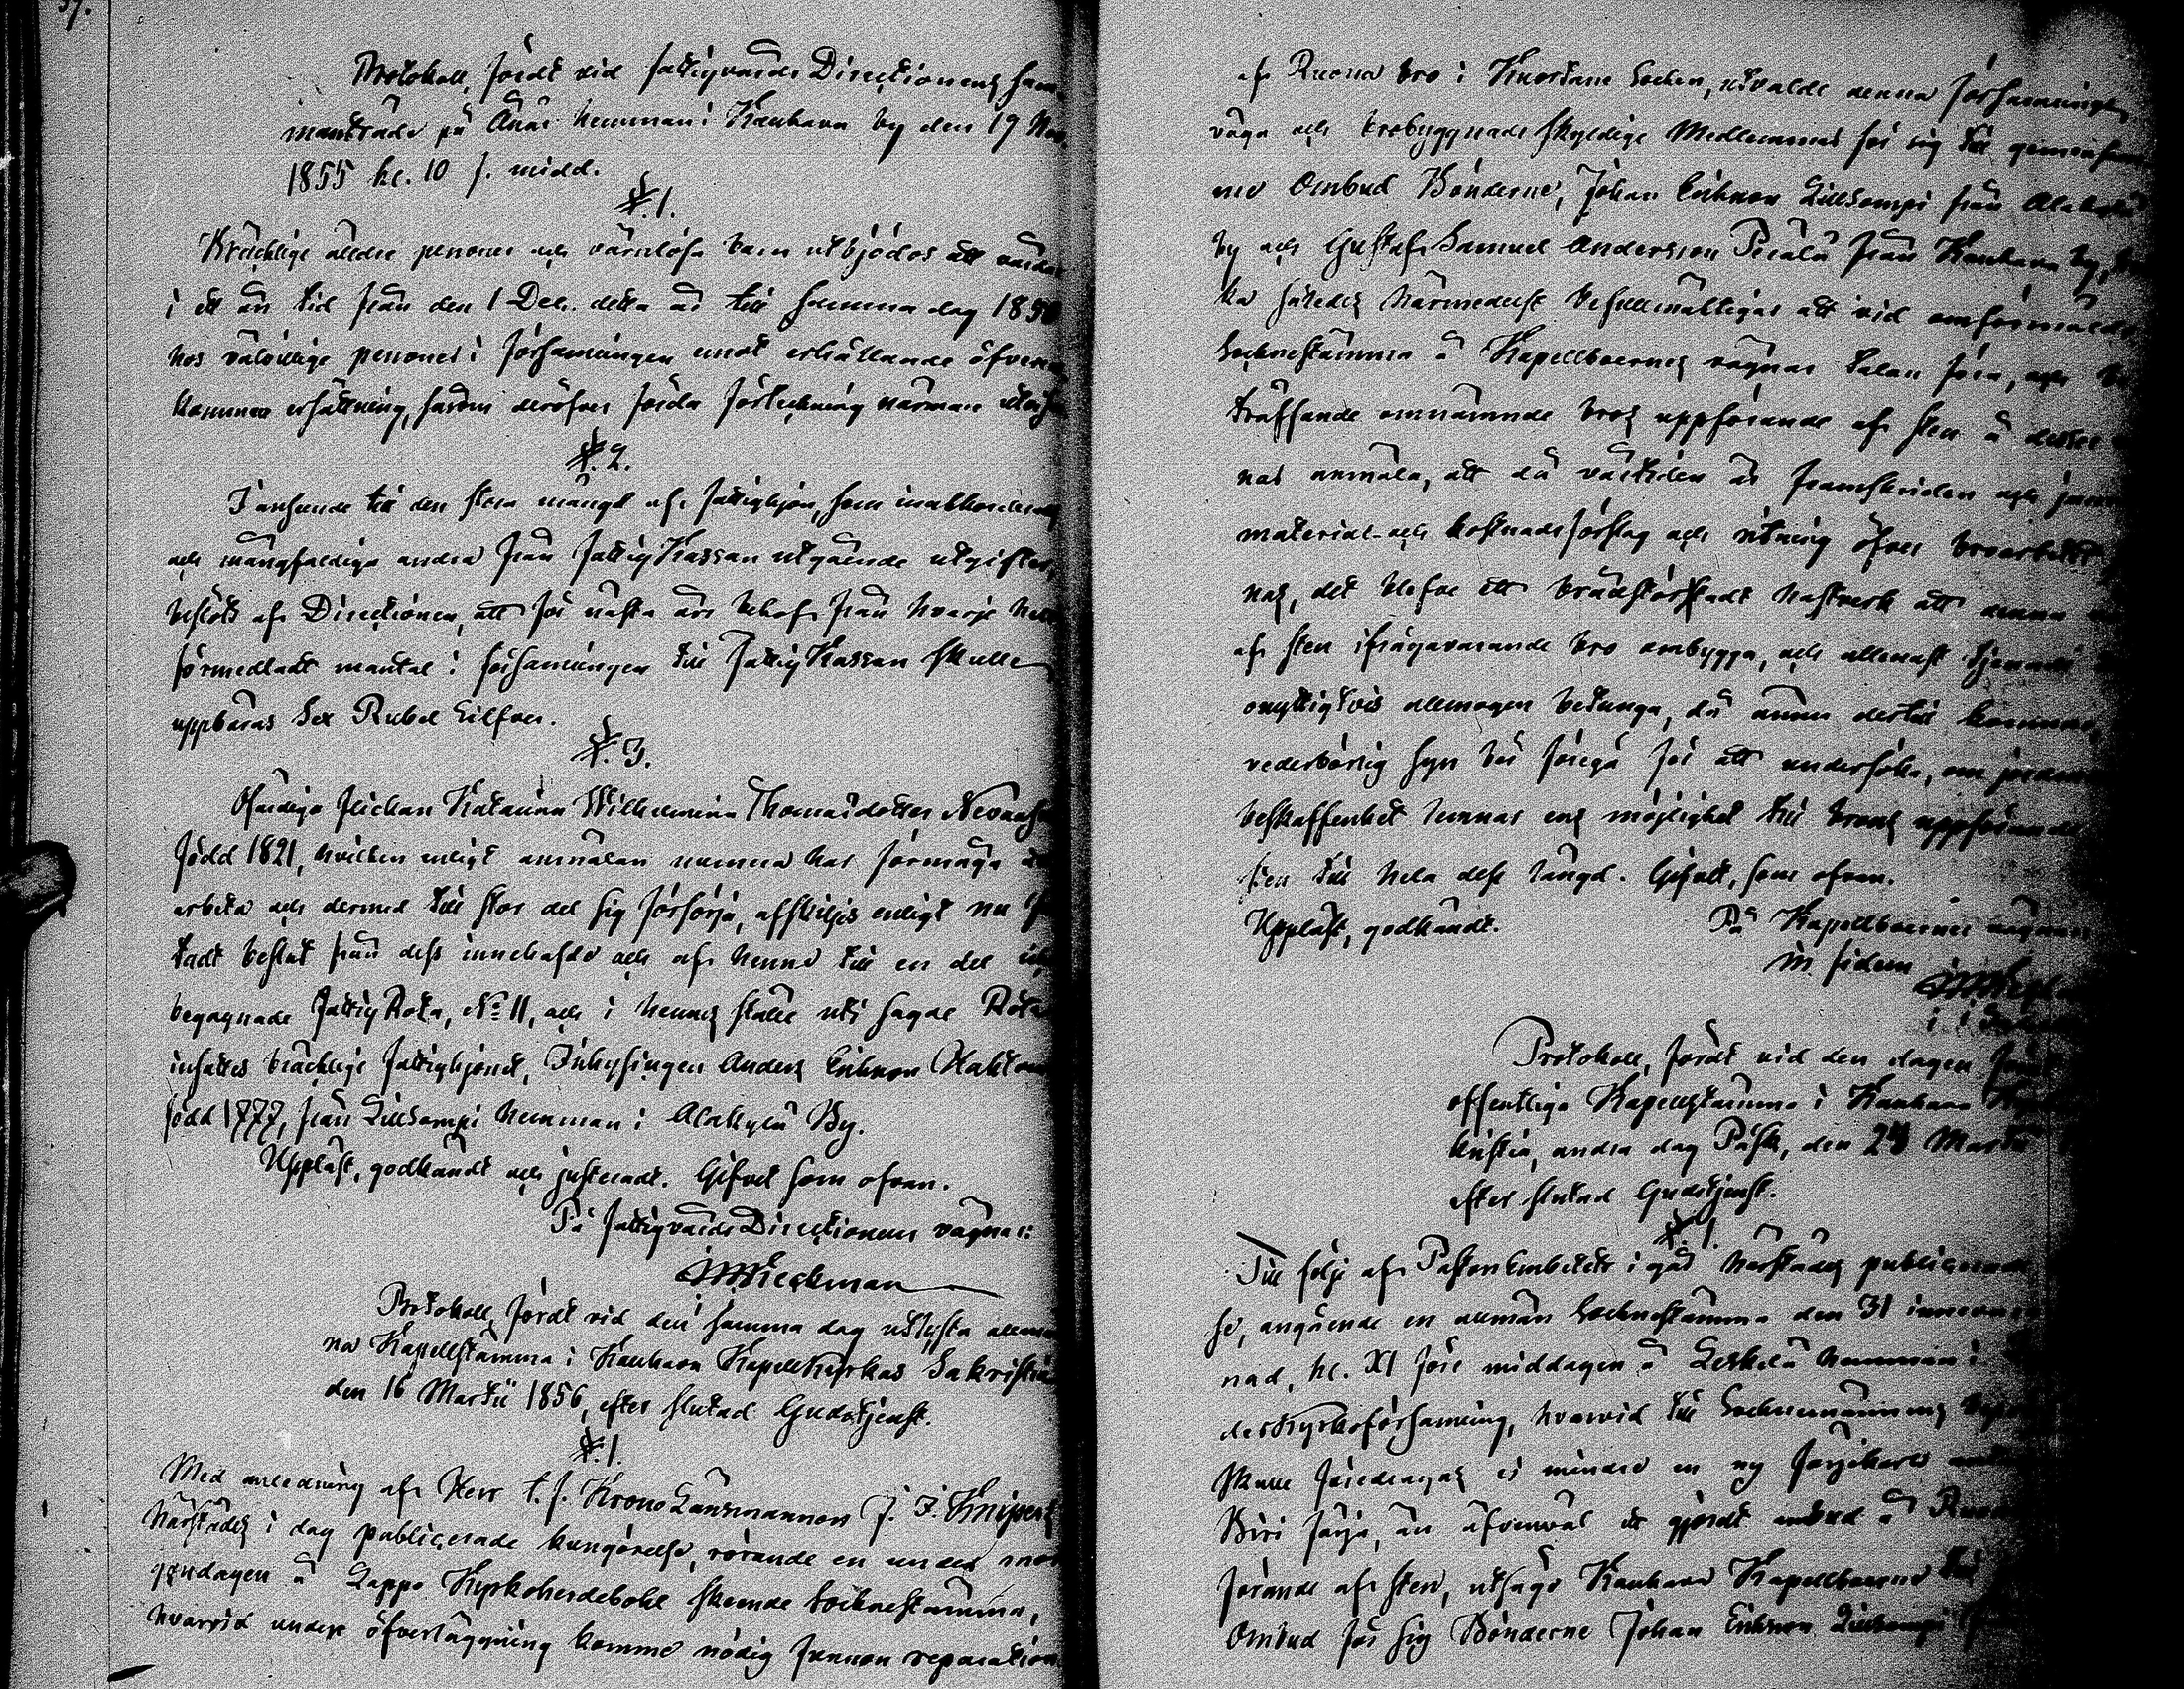 37.
Protokoll, fördt vid Fattigvårds Directionens sam-
manträde på Änäs hemman i Kauhava by den 19 Nov.
1855 kl. 10 f. midd.
§. 1.
Bräcklige äldre personer och värnlösa barn utbjödos att vårdas
i ett års tid från den 1 Dec. detta år till samma dag 1856
hos välvillige personer i församlingen emot erhållande öfverens-
kommen ersättning, såsom deröfver förda förteckning närmare
§. 2.
I anseende till den stora mängd af fattighjon, som
och mångfaldiga andra från Fattig Kassan utgående utgifter,
beslöts af Directionen, att för nästa års behof från hvarje helt
förmedladt mantal i församlingen till Fattig Kassan skulle
uppbäras Sex Rubel Silfver.
§. 3.
Ofärdiga flickan Katarina Wilhelmina Thomasdotter
född 1821, hvilken enligt anmälan numera har förmåga att
arbeta och dermed till stor del sig försörja, afskiljes enligt nu
tadt beslut från dess innehafde och af henne till en del
begagnade Fattig Rota, No 11, och i hennes ställe uti sagde Rota
insattes bräcklige fattighjonet, Inhysingen Anders Eriksson
född 1777, från Lillsompi hemman i Alakylä By.
Uppläst, godkändt och justeradt. Gifvet som ofvan.
På Fattigvårds Directionens vägnar:
Protokoll, fördt vid den samma dag utlysta allmän-
na Kapellstämma i Kauhava Kapellkyrkas Sakristia
den 16 Martii 1856, efter slutad Gudstjenst.
§. 1.
Med anledning af Herr t. f. Krono Länsmannen J. F.
härstädes i dag publicerade kungörelse, rörande en under mor-
gondagen å Lappo Kyrkoherdebohl skeende sockenstämma,
hvarvid under öfverläggning komme nödig funnen reparation
af Ruona bro i Kuortane Socken, utvalde denna församlings
väga och brobyggnads skyldige Medlemmar för sig till gemensam-
me Ombud Bönderne, Johan Eriksson Lillsompi från Alakylä
by och Gustaf Samuel Andersson Pirilä från Kauhava by,
ka således härmedelst befullmäktigas att vid omförmälde
Socknestämma å Kapellboernes vägnar talan föra, och be-
träffande omnämnde bros uppförande af sten å desses
nas anmäla, att då vårtiden är framskriden och
material- och kostnads förslag och ritning öfver broarbetet
nas, det blefve ett brådstörtadt hastverk att denna
af sten ifrågavarande bro ombygga, och allenast tjena
onyttigtvis allmogen betunga, då ännu dertill kommer,
vederbörlig syn bör föregå för att undersöka, om jordens
beskaffenhet lemnar ens möjlighet till brons uppförande
sten till hela dess längd. Gifvet, som ofvan.
Uppläst, godkändt. På Kapellboernes vägnar
in fidem
Protokoll, fördt vid den dagen
offentliga Kapellstämma i Kauhava
kristia, andra dag Påsk, den 24 Martii
efter slutad Gudstjenst.
§. 1.
Till följe af Pastors Embetets i går härstädes publicerade
se, angående en allmän Socknestämma den 31 innevarande
nad, kl. XI före middagen å Leskelä hemman i
derkyrkoförsamling, hvarvid till Socknemännens
skulle föredragas ej mindre en ny färjekarls
Biri färja, än äfvenväl ett gjordt anbud å
förande af sten, utsågo Kauhava Kapellboerne till
Ombud för sig Bönderne Johan Eriksson Lillsompi